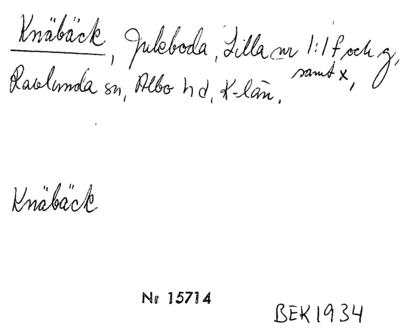 Knäbäck, Juleboda, Lilla nr 1:1 f och g,
samt x,
Ravlunda sn, Albo hd, K-län.
Knäbäck
Nr 15714
BEK 1934